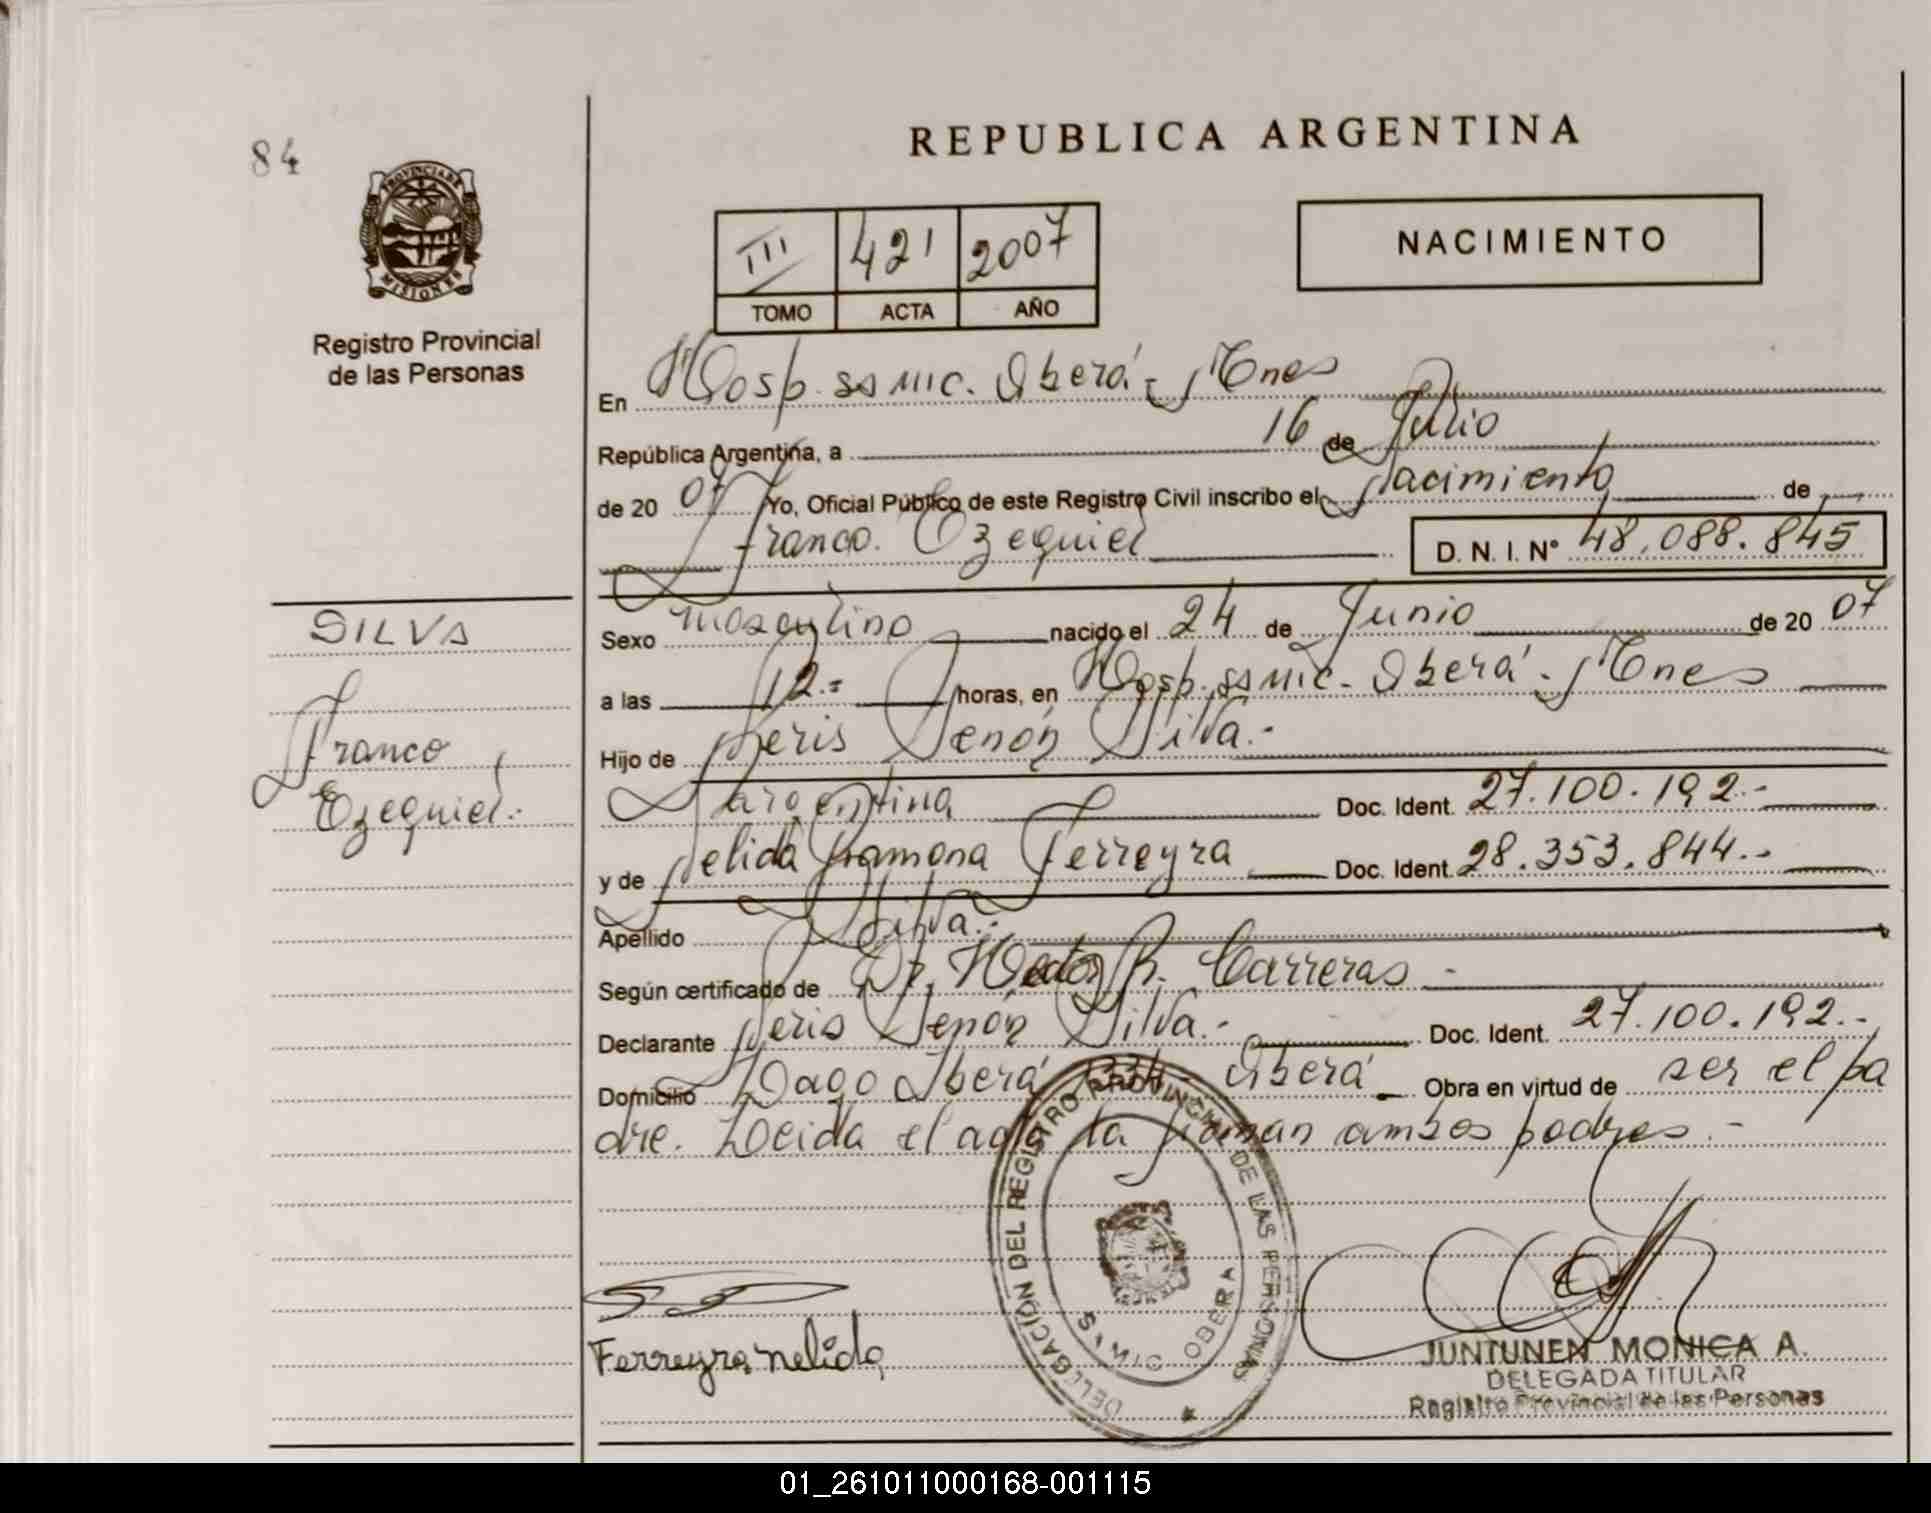 84
REPUBLICA ARGENTINA
PROVINCIA DE
MISIONES
Registro Provincial
de las Personas
III 421 2007
TOMO ACTA AÑO
NACIMIENTO
En Hosp. ss mic. Oberá - Mnes
República Argentina, a 16 de Julio
de 20 07 Yo, Oficial Público de este Registro Civil inscribo el Nacimiento de
Franco Ezequiel D. N. I. Nº 48.088.845
SILVA
Franco
Ezequiel.-
Sexo masculino nacido el 24 de Junio de 20 07
a las 12.= horas, en Hosp. ss mic - Oberá - Mnes
Hijo de Neris Zenón Silva.-
Argentina Doc. Ident. 27.100.192.-
y de Nelida Ramona Ferreyra Doc. Ident. 28.353.844.-
Apellido Silva.-
Según certificado de Dr. Hector R. Carreras -
Declarante Neris Zenón Silva.- Doc. Ident. 27.100.192.-
Domicilio Lago Iberá Oberá Obra en virtud de ser el pa
dre. Leida el acta la firman ambos padres.-
DELEGACIÓN DEL REGISTRO PROVINCIAL DE LAS PERSONAS
SAMIC OBERA
Ferreyra nelida
JUNTUNEN MONICA A.
DELEGADA TITULAR
Registro Provincial de las Personas
01_261011000168-001115